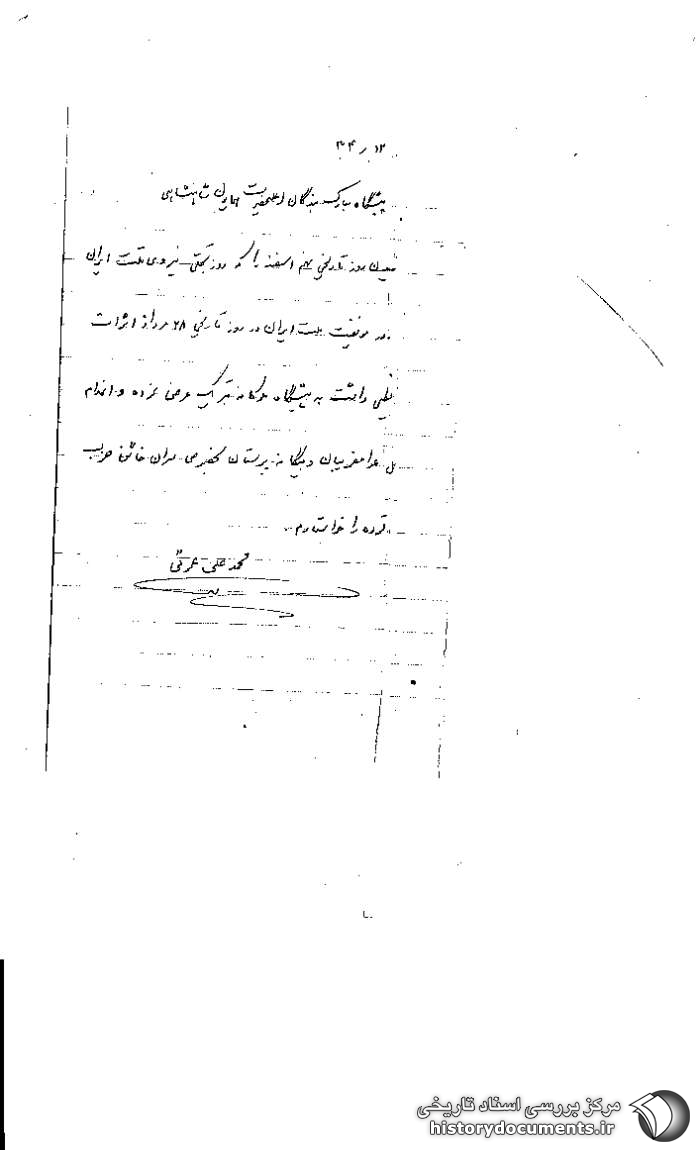 ۱۲ ر ۳۴
پیشگاه مبارک بندگان اعلیحضرت همایون شاهنشاهی
روز تاریخی نهم اسفند را که روز تجلی نیروی ملت ایران
در موفقیت ملت ایران در روز تاریخی ۲۸ مرداد اثرات
داشت به پیشگاه ملوکانه تبریک عرض کرده و اعدام
عوامفریبان و بیگانه پرستان بخصوص سران خائن حزب
توده را خواستارم
محمد علی عرقی
مرکز بررسی اسناد تاریخی
historydocuments.ir